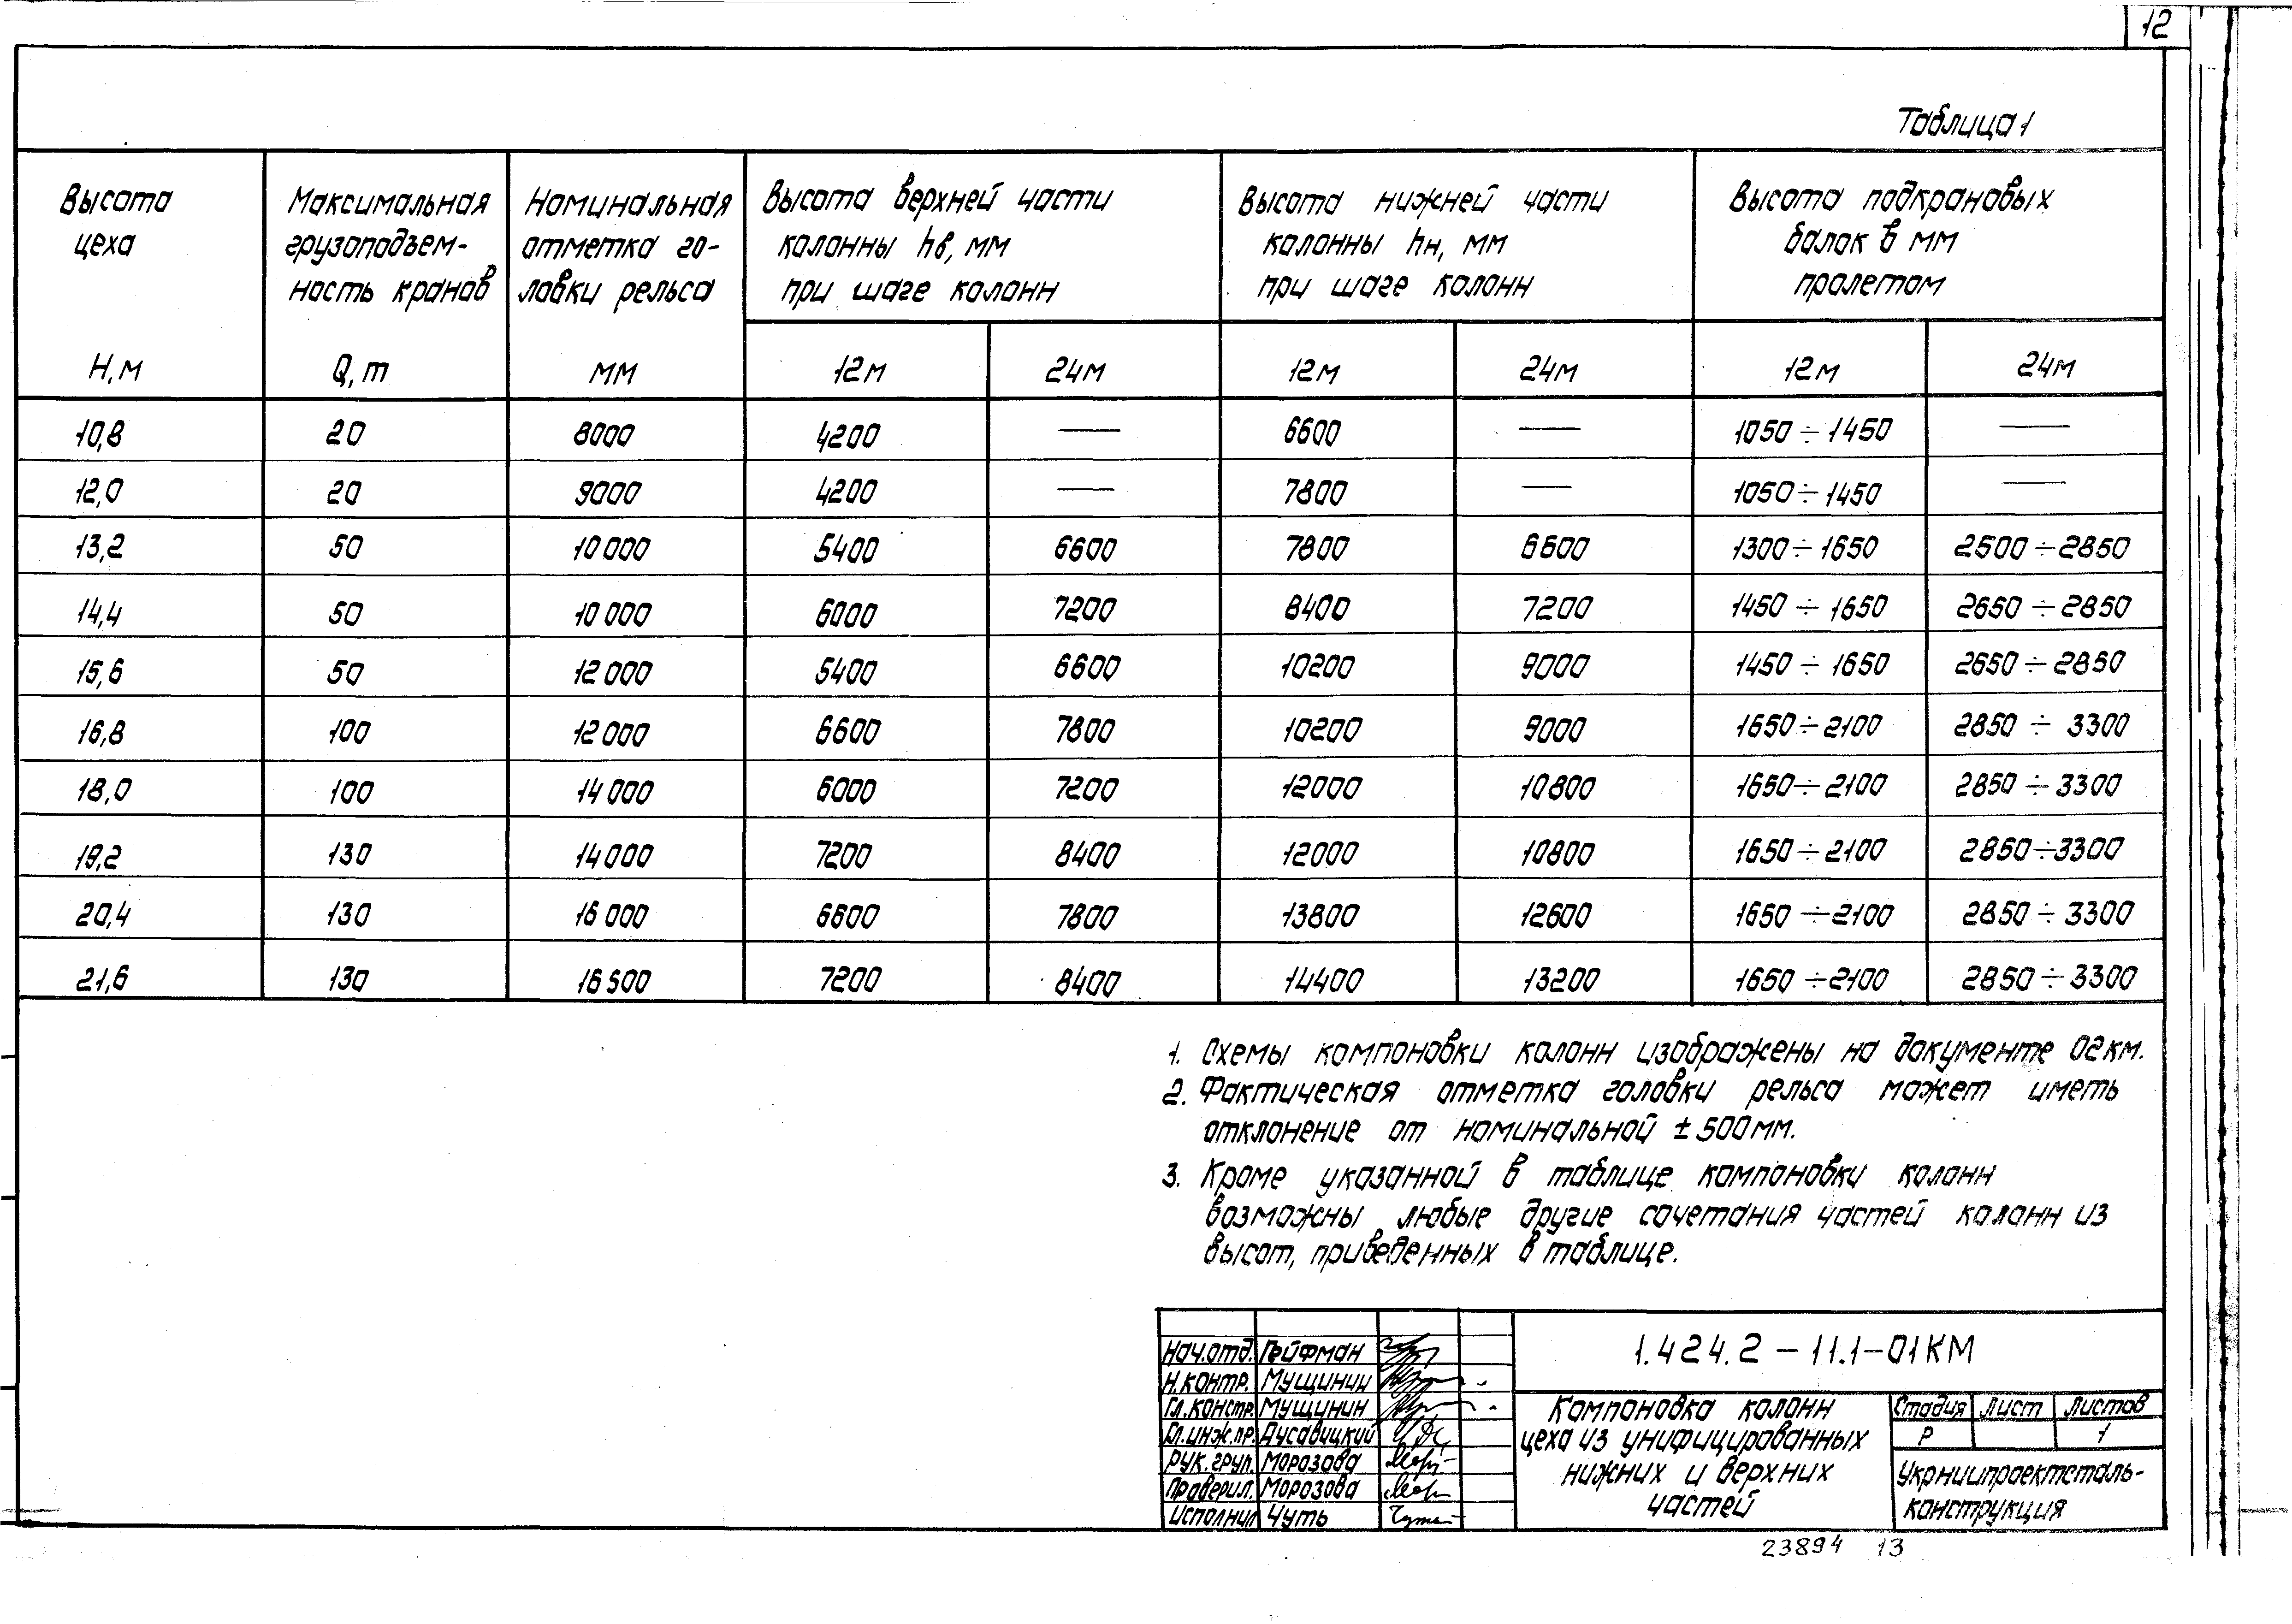 12
Таблица 1
Высота цеха Н, м | Максимальная грузоподъем- ность кранов Q, т | Номинальная отметка го- ловки рельса мм | Высота верхней части колонны hв, мм при шаге колонн | Высота нижней части колонны hн, мм при шаге колонн | Высота подкрановых балок в мм пролетом
12м | 24м | 12м | 24м | 12м | 24м
10,8 | 20 | 8000 | 4200 | — | 6600 | — | 1050 ÷ 1450 | —
12,0 | 20 | 9000 | 4200 | — | 7800 | — | 1050 ÷ 1450 | —
13,2 | 50 | 10 000 | 5400 | 6600 | 7800 | 6600 | 1300 ÷ 1650 | 2500 ÷ 2850
14,4 | 50 | 10 000 | 6000 | 7200 | 8400 | 7200 | 1450 ÷ 1650 | 2650 ÷ 2850
15,6 | 50 | 12 000 | 5400 | 6600 | 10200 | 9000 | 1450 ÷ 1650 | 2650 ÷ 2850
16,8 | 100 | 12 000 | 6600 | 7800 | 10200 | 9000 | 1650 ÷ 2100 | 2850 ÷ 3300
18,0 | 100 | 14 000 | 6000 | 7200 | 12000 | 10800 | 1650 ÷ 2100 | 2850 ÷ 3300
19,2 | 130 | 14 000 | 7200 | 8400 | 12000 | 10800 | 1650 ÷ 2100 | 2850 ÷ 3300
20,4 | 130 | 16 000 | 6600 | 7800 | 13800 | 12600 | 1650 ÷ 2100 | 2850 ÷ 3300
21,6 | 130 | 16 500 | 7200 | 8400 | 14400 | 13200 | 1650 ÷ 2100 | 2850 ÷ 3300
1. Схемы компоновки колонн изображены на документе 02км.
2. Фактическая отметка головки рельса может иметь
отклонение от номинальной ± 500мм.
3. Кроме указанной в таблице компоновки колонн
возможны любые другие сочетания частей колонн из
высот, приведенных в таблице.
Нач.отд. Гейфман
Н.контр. Мущинин
Гл.констр. Мущинин
Гл.инж.пр.
Рук.груп. Морозова
Проверил. Морозова
Исполнил Чуть
1.424.2 – 11.1–01КМ
Компоновка колонн
цеха из унифицированных
нижних и верхних
частей
Стадия | Лист | Листов
Р | | 1
Укрниипроектсталь-
конструкция
23894 13